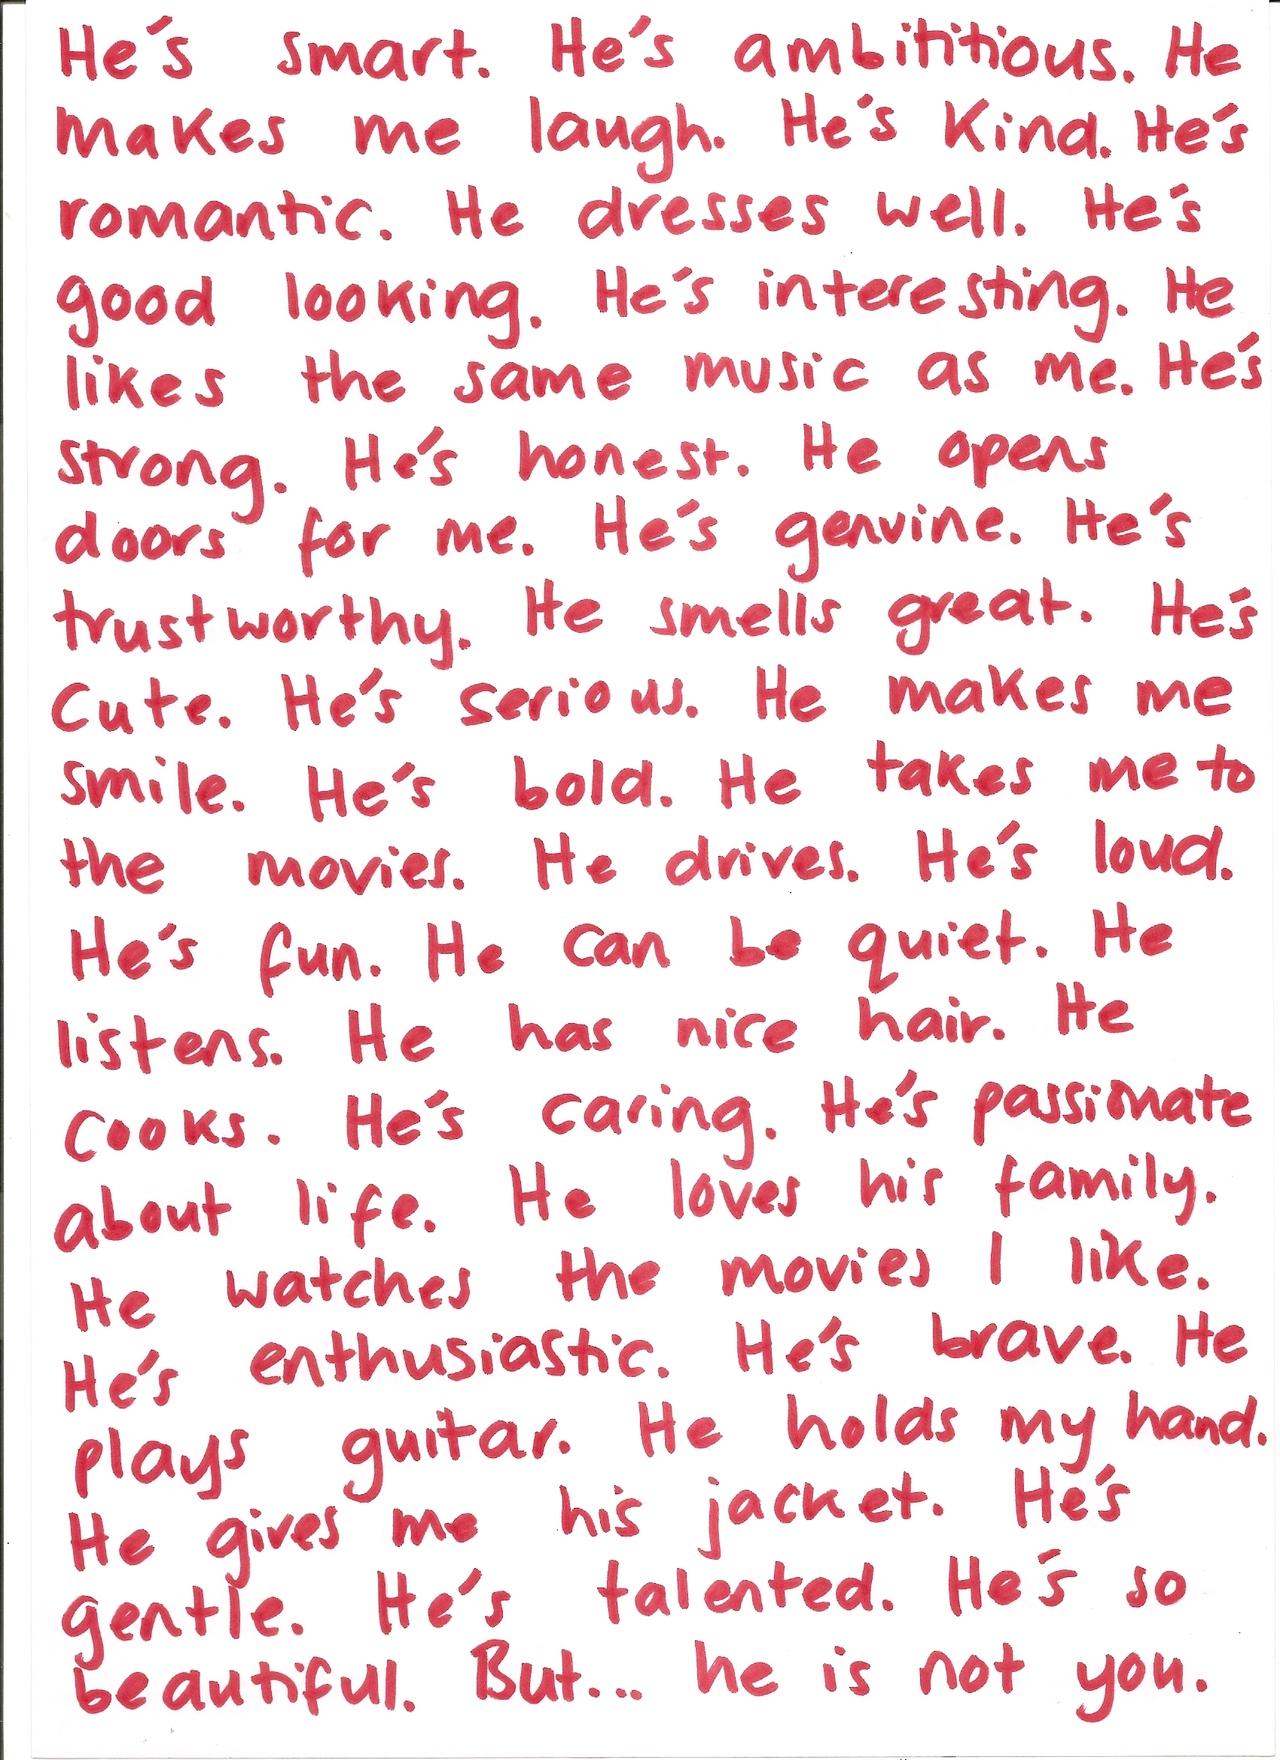 He's smart. He's ambititious. He
makes me laugh. He's kind. He's
romantic. He dresses well. He's
good looking. He's interesting. He
likes the same music as me. He's
strong. He's honest. He opens
doors for me. He's genuine. He's
trustworthy. He smells great. He's
cute. He's serious. He makes me
smile. He's bold. He takes me to
the movies. He drives. He's loud.
He's fun. He can be quiet. He
listens. He has nice hair. He
cooks. He's caring. He's passionate
about life. He loves his family.
He watches the movies I like.
He's enthusiastic. He's brave. He
plays guitar. He holds my hand.
He gives me his jacket. He's
gentle. He's talented. He's so
beautiful. But... he is not you.